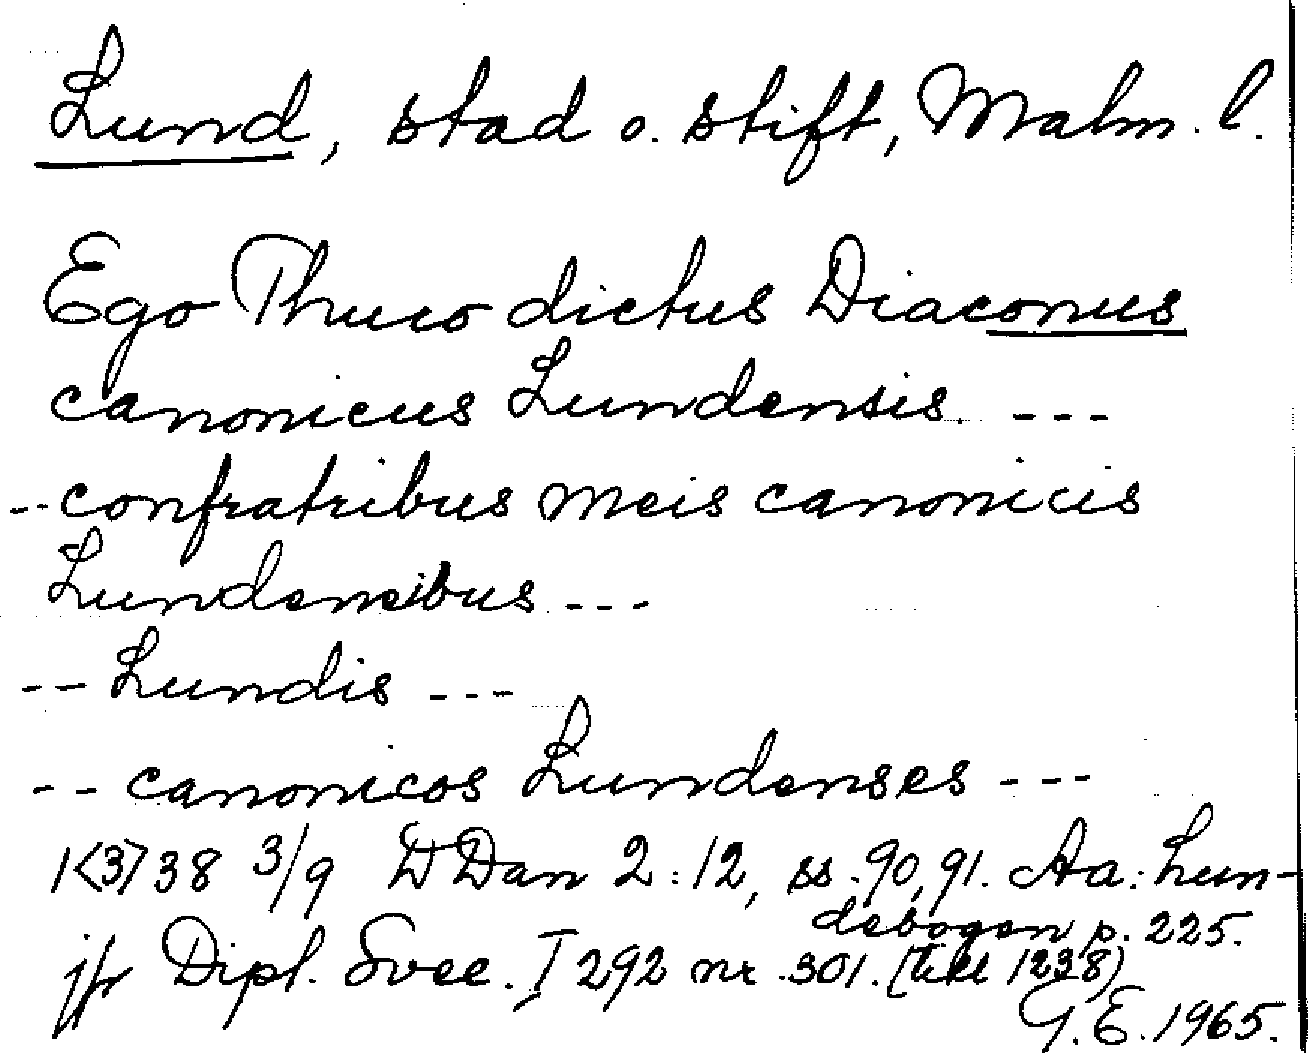 Lund, stad o. stift, Malm. l.
Ego Thuco dictus Diaconus
canonicus Lundensis ---
-- confratribus meis canonicis
Lundensibus ---
-- Lundis ---
-- canonicos Lundenses ---
1<3>38 3/9 DDan 2:12, ss. 90, 91. Aa: Lun-
debogen p. 225.
jfr Dipl. Svec. I 292 nr. 301. (till 1238)
G.E. 1965.